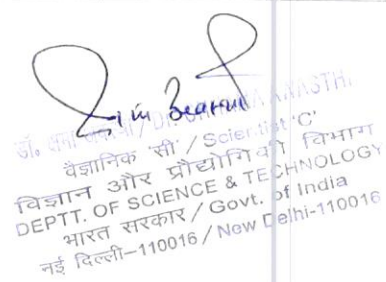 डॉ.
/ DR.
वैज्ञानिक 'सी' / Scientist 'C'
विज्ञान और प्रौद्योगिकी विभाग
DEPTT. OF SCIENCE & TECHNOLOGY
भारत सरकार / Govt. of India
नई दिल्ली-110016 / New Delhi-110016